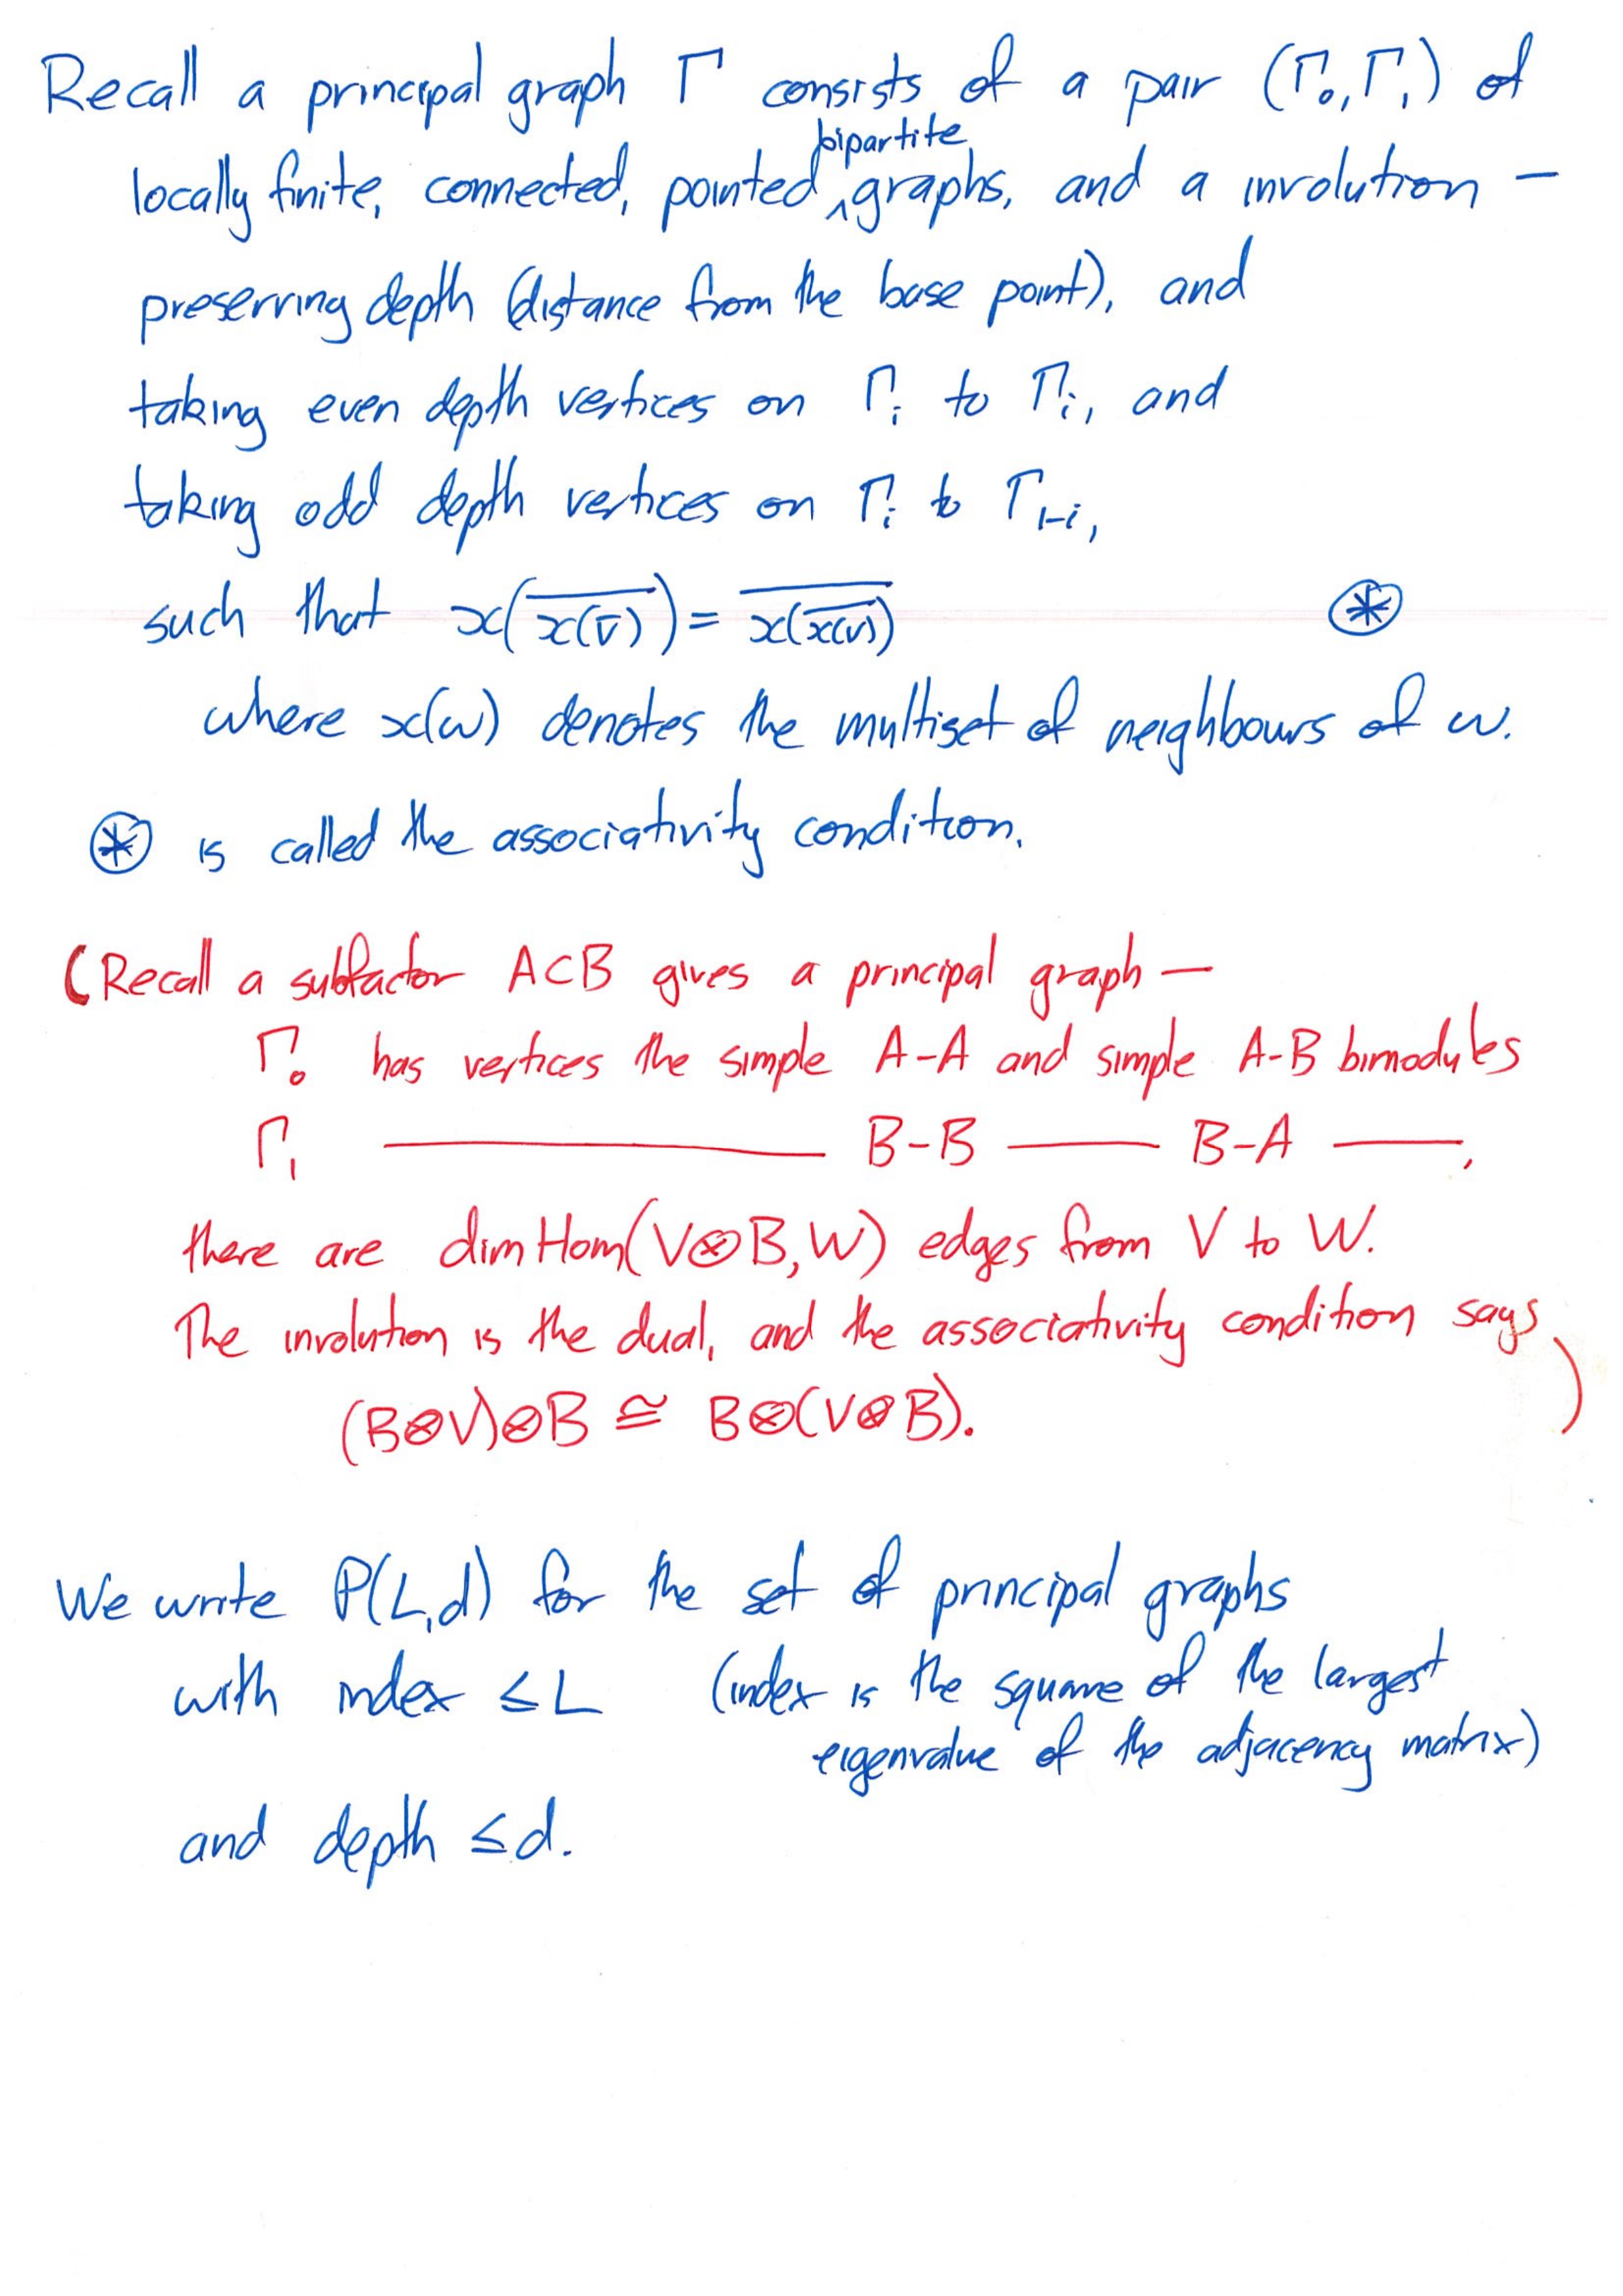 Recall a principal graph Γ consists of a pair (Γ₀, Γ₁) of
locally finite, connected, pointed ‸bipartite graphs, and a involution —
preserving depth (distance from the base point), and
taking even depth vertices on Γᵢ to Γᵢ, and
taking odd depth vertices on Γᵢ to Γ₁₋ᵢ,
such that x(\overline{x(\overline{v})}) = \overline{x(\overline{x(v)})} ⊛
where x(w) denotes the multiset of neighbours of w.
⊛ is called the associativity condition.
(Recall a subfactor A⊂B gives a principal graph —
Γ₀ has vertices the simple A-A and simple A-B bimodules
Γ₁ ——— B-B ——— B-A ———,
there are dim Hom(V⊗B, W) edges from V to W.
The involution is the dual, and the associativity condition says
(B⊗V)⊗B ≅ B⊗(V⊗B). )
We write P(L,d) for the set of principal graphs
with index ≤ L (index is the square of the largest
eigenvalue of the adjacency matrix)
and depth ≤ d.